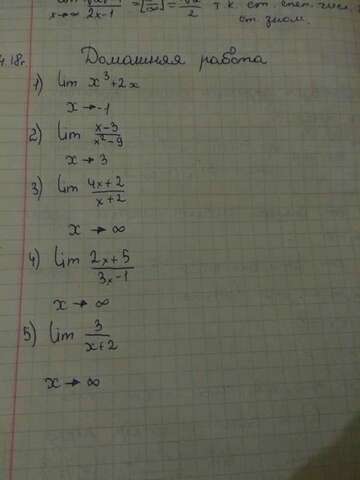 x→∞ 2x-1 =[∞/∞]= /2 т.к. ст. степ. числ.
ст. знам.
Домашняя работа
1) lim x³+2x
x→-1
2) lim (x-3)/(x²-9)
x→3
3) lim (4x+2)/(x+2)
x→∞
4) lim (2x+5)/(3x-1)
x→∞
5) lim 3/(x+2)
x→∞